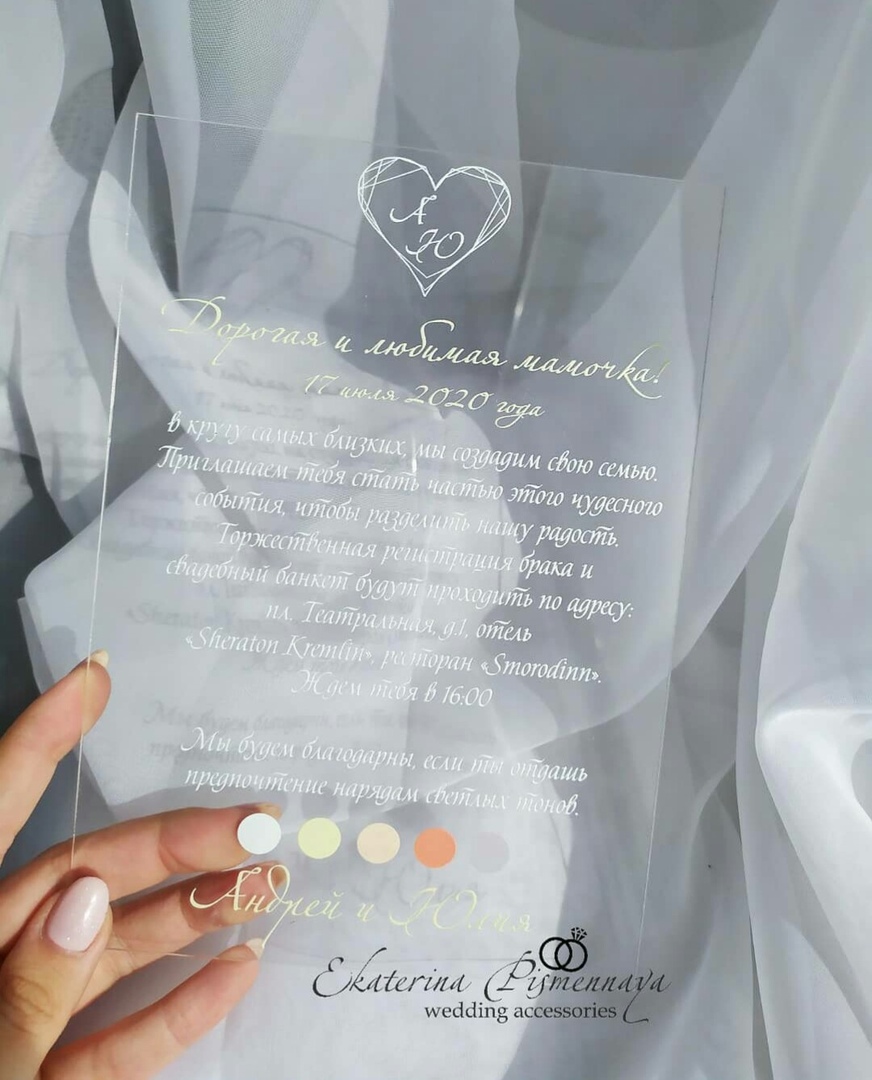 А
Ю
Дорогая и любимая мамочка!
17 июля 2020 года
в кругу самых близких, мы создадим свою семью.
Приглашаем тебя стать частью этого чудесного
события, чтобы разделить нашу радость.
Торжественная регистрация брака и
свадебный банкет будут проходить по адресу:
пл. Театральная, д.1, отель
«Sheraton Kremlin», ресторан «Smorodinn».
Ждем тебя в 16:00
Мы будем благодарны, если ты отдашь
предпочтение нарядам светлых тонов.
Андрей и Юлия
Ekaterina Pismennaya
wedding accessories